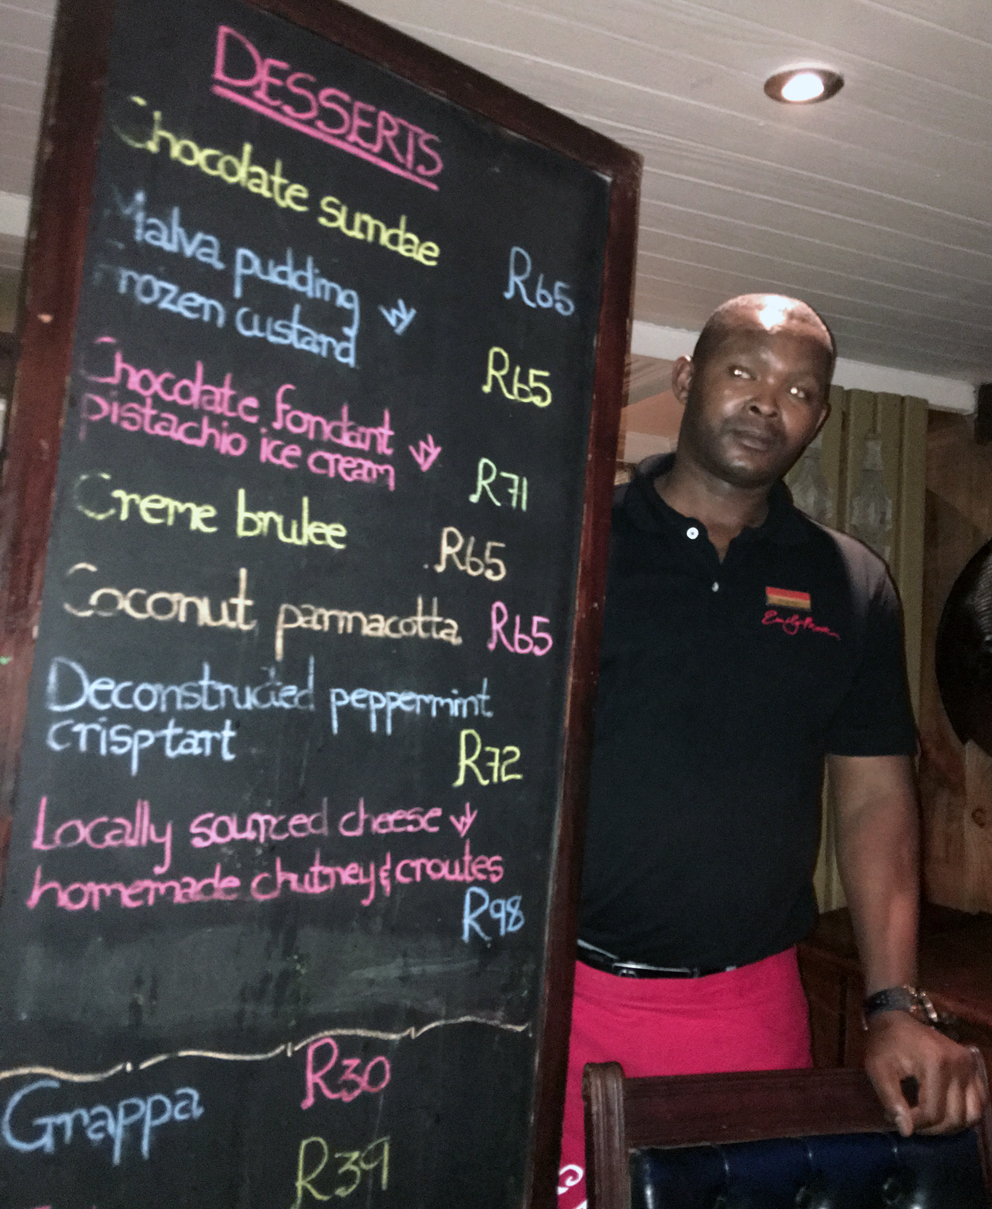 DESSERTS
Chocolate sundae
R65
Malva pudding w/
Frozen custard
R65
Chocolate fondant w/
pistachio ice cream
R71
Creme brulee
R65
Coconut pannacotta R65
Deconstructed peppermint
crisp tart
R72
Locally sourced cheese w/
homemade chutney & croutes
R98
Grappa R30
R39